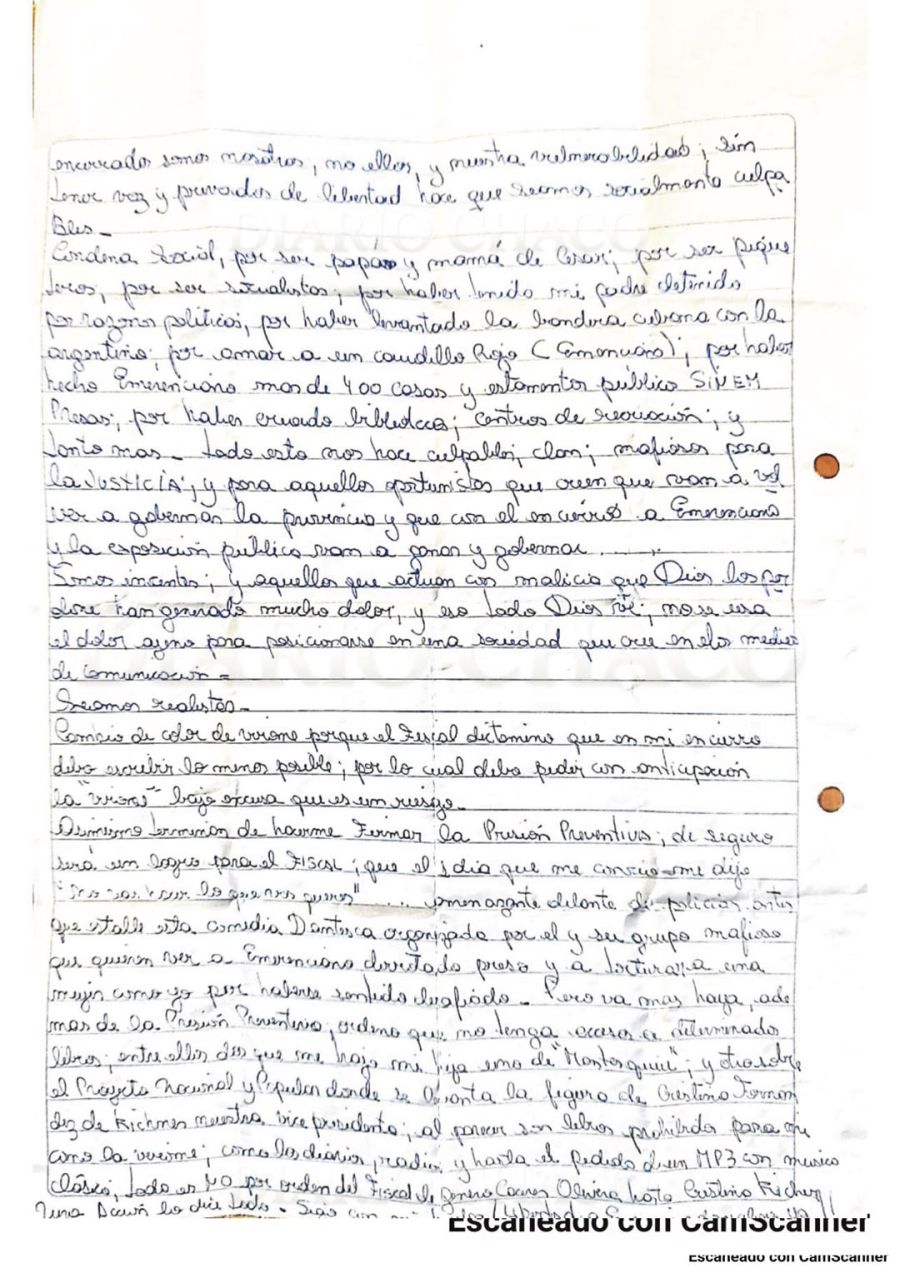 encerrados somos nosotros, no ellos, y nuestra vulnerabilidad; sin
tener voz y privados de libertad hace que seamos socialmente culpa
bles_
DIARIO CHACO
Condena Social, por ser papás y mamá de Cesar; por ser pique
teros, por ser socialistas; por haber tenido mi padre detenido
por razones politicas, por haber levantado la bandera cubana con la
argentina; por amar a un caudillo Rojo (Emerenciano); por haber
hecho Emerenciano mas de 400 casas y estamentos público SIN EM
PRESAS; por haber creado bibliotecas; centros de recreación; y
tanto mas_ todo esto nos hace culpables, clan; mafiosos para
la JUSTICIA; y para aquellos oportunistas que creen que van a vol
ver a gobernar la provincia y que con el encierro a Emerenciano
y la exposición pública van a ganar y gobernar ......
Somos inocentes; y aquellos que actuan con malicia que Dios los per
done han generado mucho dolor, y eso todo Dios ve; no se usa
el dolor ajeno para posicionarse en una sociedad que cree en los medios
DIARIO CHACO
de comunicación =
Seamos realistas_
Cambio de color de birome porque el Fiscal dictamino que en mi encierro
debo escribir lo menos posible; por lo cual debo pedir con anticipación
la "birome" bajo excusa que es un riesgo_
Asimismo terminan de hacerme Firmar la Prisión Preventiva; de seguro
será un logro para el Fiscal; que el día que me conocio me dijo
"no vas hacer lo que vos queres" .... amenazante delante de policias antes
que estalle esta comedia Dantesca organizada por el y su grupo mafioso
que quieren ver a Emerenciano derrotado preso y a torturar a una
mujer como yo por haberse sentido desafiado_ Pero va mas haya, ade
mas de la Prisión Preventiva, ordena que no tenga acceso a determinados
libros; entre ellos dos que me trajo mi hija uno de "Montesquiu"; y otro sobre
el Proyecto Nacional y Popular donde se levanta la figura de Cristina Fernan
dez de Kichner nuestra vice presidenta; al parecer son libros prohibidos para mi
como la birome; como los diarios, radio, y hasta el pedido de un MP3 con musica
clásica, todo es NO por orden del Fiscal de genero Caceres Olivera hasta Cristina Kichner
Escaneado con CamScanner
Escaneado con CamScanner